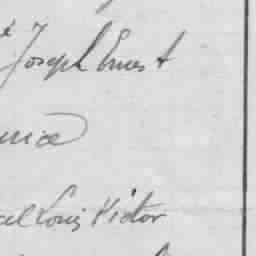 é Joseph Ernest
urice
el Louis Victor